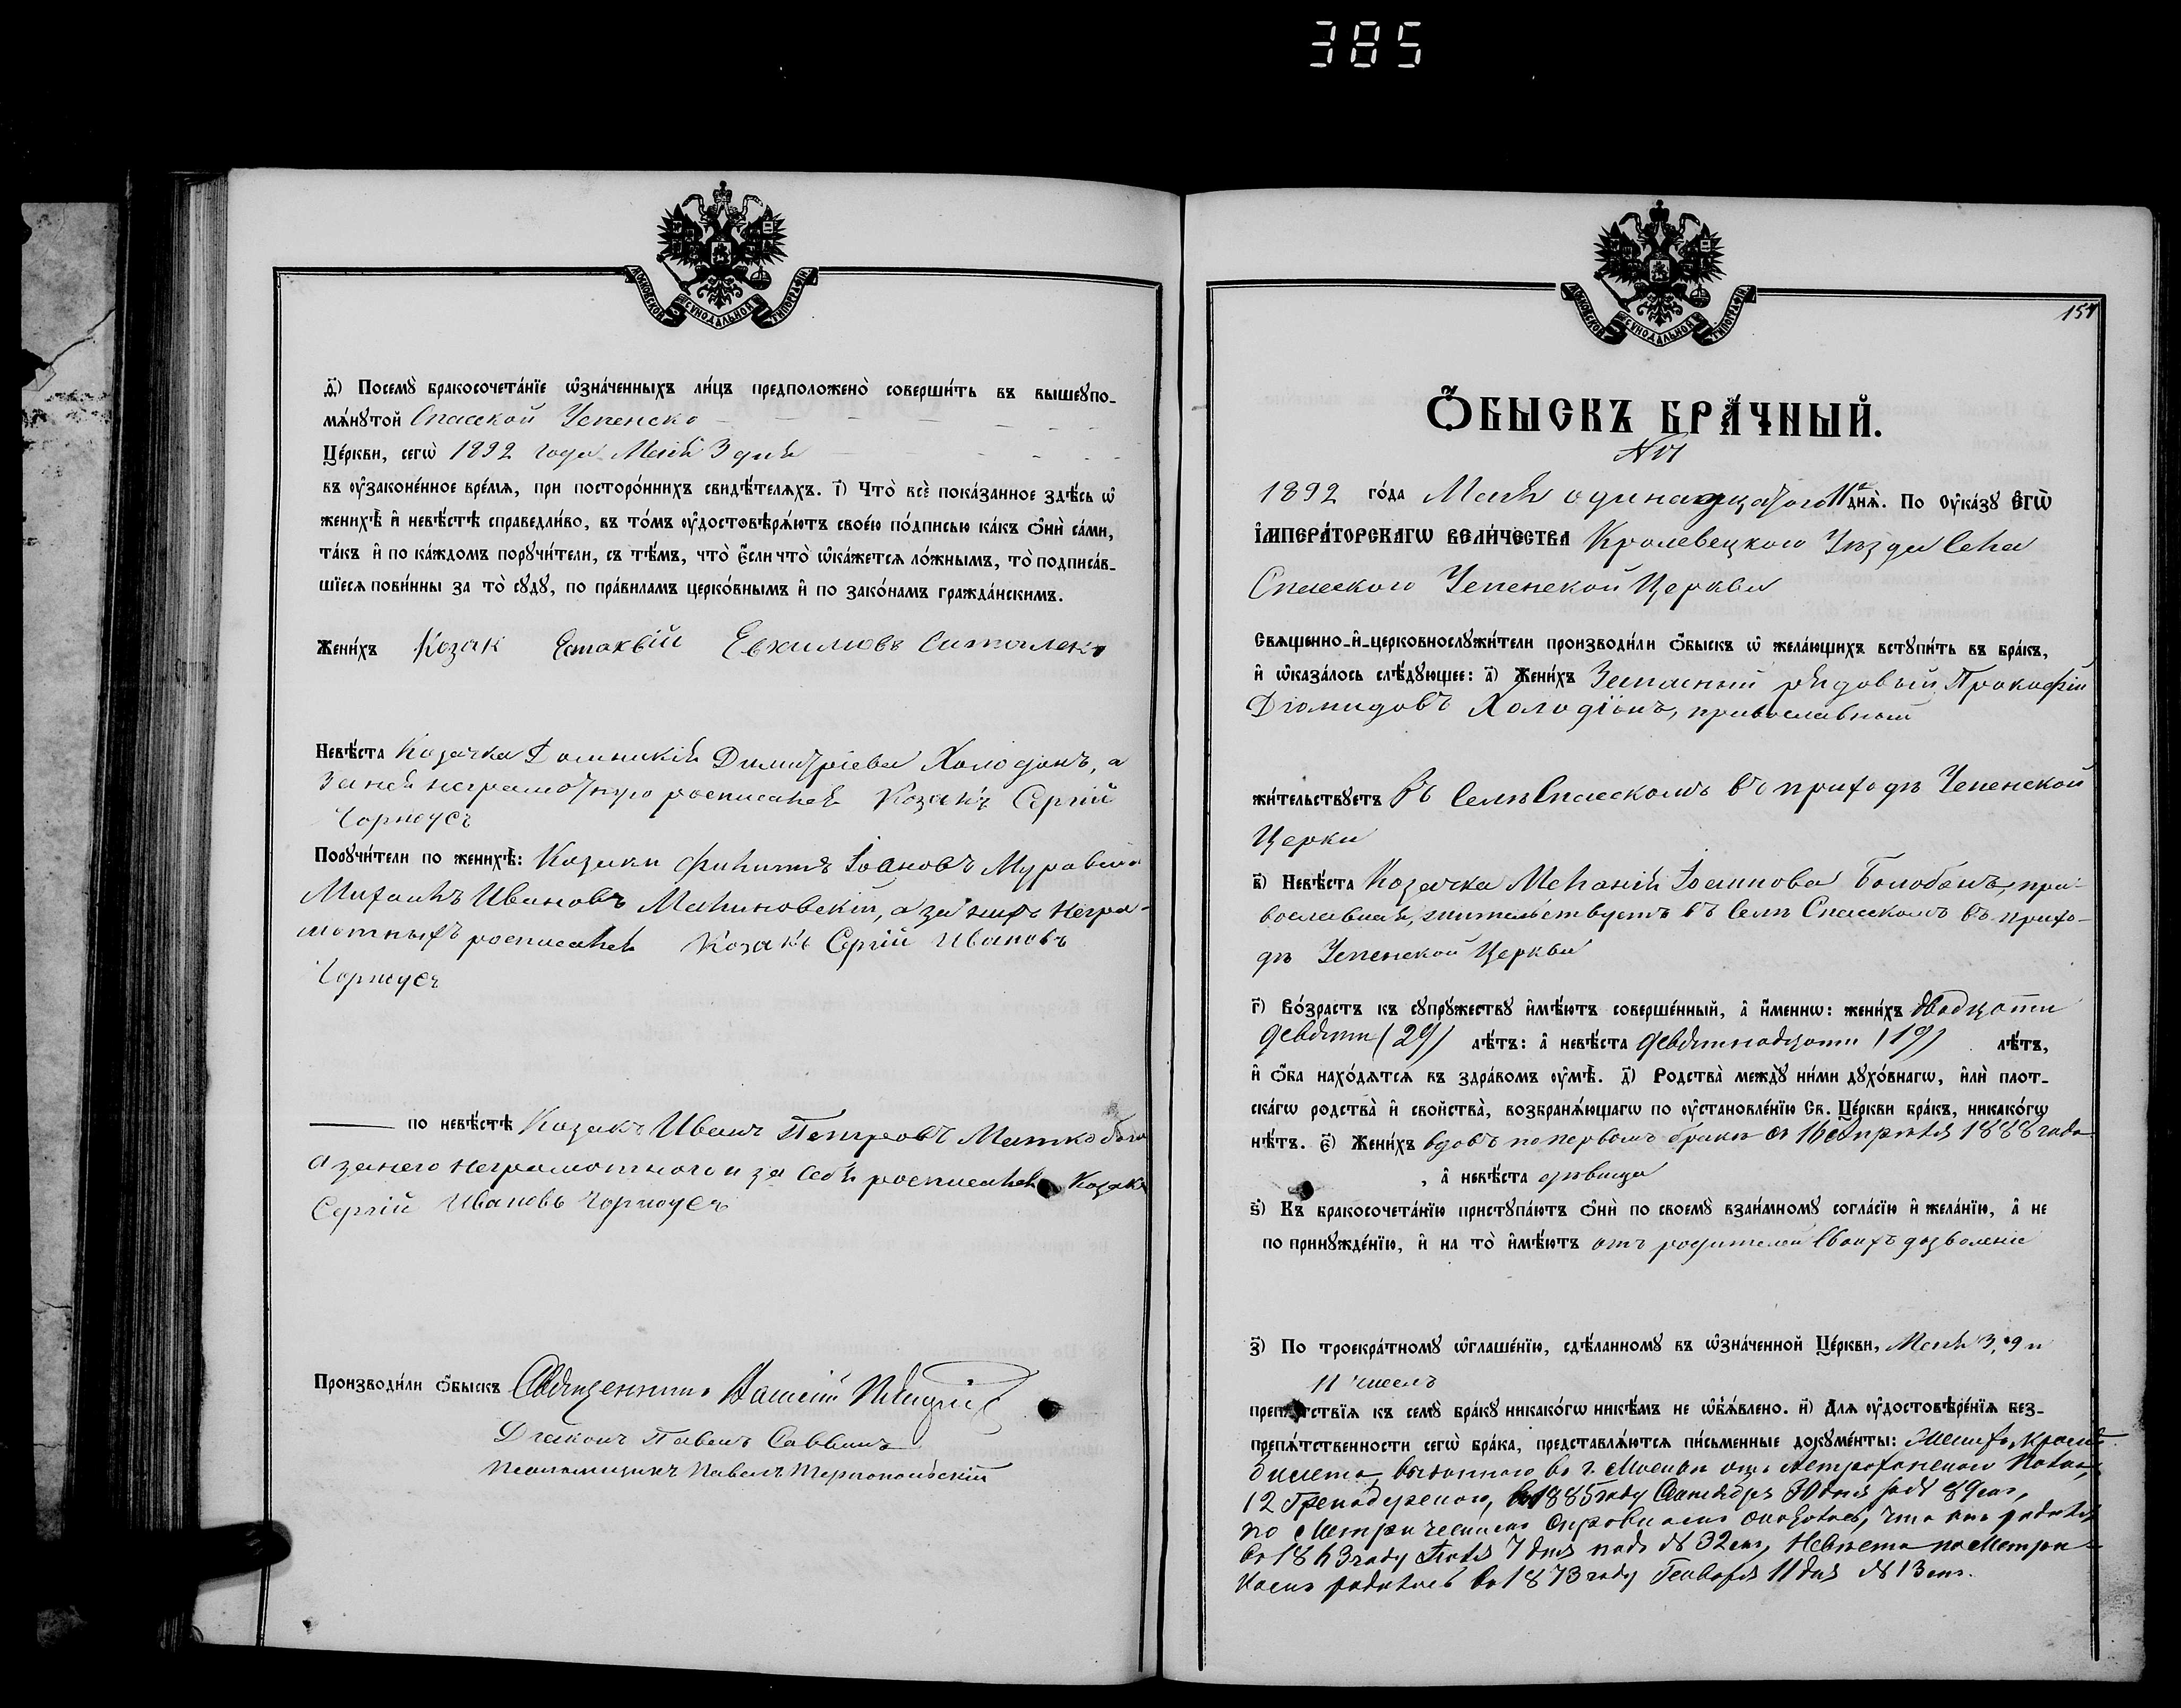 385
МОСКОВСКОЙ СѴНОДАЛЬНОЙ ТИПОГРАФІИ
д҃і) Посемꙋ̀ бракосочета́нїе ѡ҆зна́ченныхъ ли́цъ предположено̀ соверши́ть въ вышеꙋпо-
мѧ́нꙋтой Спасской Успенско
Це́ркви, сегѡ̀ 1892 года Маія 3 дня
въ ᲂу҆законе́нное вре́мѧ, при посторо́ннихъ свидѣ́телѧхъ. і҃) Что̀ всѐ пока́занное здѣ́сь ѡ҆
женихѣ̀ и҆ невѣ́стѣ справедли́во, въ то́мъ ᲂу҆достовѣрѧ́ютъ свое́ю по́дписью ка́къ ѻ҆нѝ са́ми,
та́къ и҆ по ка́ждомъ порꙋчи́тели, съ тѣ́мъ, что̀ є҆́сли что̀ ѡ҆ка́жетсѧ ло́жнымъ, то̀ подписа́в-
шїесѧ пови́нны за то̀ сꙋдꙋ̀, по пра́виламъ церко́внымъ и҆ по зако́намъ гражда́нскимъ.
Жени́хъ Козак Евстаквій Евхимовъ Ситалско
Невѣ́ста Козачка Домникія Димитріева Холодіонъ, а
за ней неграмотную росписался Козакъ Сергій
Чорноусъ
Порꙋчи́тели по женихѣ̀: Козаки Филиппъ Іоановъ Муравіо
Михаилъ Ивановъ Малиновскій, а за нихъ негра-
мотныхъ росписался Козакъ Сергій Ивановъ
Чорноусъ
по невѣ́стѣ Козакъ Иванъ Петровъ
а за него неграмотного и за себя росписался Козакъ
Сергій Ивановъ Чорноусъ
Производи́ли ѻ҆́быскъ Священникъ Василій
Діаконъ Павелъ Саввинъ
Псаломщикъ Павелъ Тернопольскій
МОСКОВСКОЙ СѴНОДАЛЬНОЙ ТИПОГРАФІИ
157
Ѻ҆́БЫСКЪ БРА́ЧНЫЙ.
1892 го́да Маія одинадцатого 11 днѧ̀. По ᲂу҆ка́зꙋ Є҆гѡ̀
І҆мпера́торскагѡ Вели́чества Кролевецкого Уѣзда Села
Спасского Успенской Церкви
Свѧщенно-и҆-церковнослꙋжи́тели производи́ли ѻ҆́быскъ ѡ҆ жела́ющихъ встꙋпи́ть въ бра́къ,
и҆ ѡ҆каза́лось слѣ́дꙋющее: а҃) Жени́хъ Запасный рядовый Прокофій
Діомидовъ Холодіонъ, православный
жи́тельствꙋетъ въ Селѣ Спасскомъ въ приходѣ Успенской
Церкви
в҃) Невѣ́ста Козачка Меланія ІоанноваБолобанъ, пра-
вославная, жительствуетъ въ Селѣ Спасскомъ въ прихо-
дѣ Успенской Церкви
г҃) Во́зрастъ къ сꙋпрꙋ́жествꙋ и҆мѣ́ютъ соверше́нный, а҆ и҆́меннѡ: жени́хъ двадцати
девяти (29) лѣ́тъ: а҆ невѣ́ста девятнадцати (19) лѣ́тъ,
и҆ ѻ҆́ба нахо́дѧтсѧ въ здра́вомъ ᲂу҆мѣ̀. д҃) Родства̀ междꙋ̀ ни́ми дꙋхо́внагѡ, и҆лѝ плот-
ска́гѡ родства̀ и҆ свойства̀, возбранѧ́ющагѡ по ᲂу҆становле́нїю Св. Це́ркви бра́къ, никако́гѡ
нѣ́тъ. є҃) Жени́хъ вдовъ по первомъ бракѣ съ 16 апрѣля 1888 года
, а҆ невѣ́ста дѣвица
ѕ҃) Къ бракосочета́нїю пристꙋпа́ютъ ѻ҆нѝ по своемꙋ̀ взаи́мномꙋ согла́сїю и҆ жела́нїю, а҆ не
по принꙋжде́нїю, и҆ на то̀ и҆мѣ́ютъ отъ родителей своихъ дозволеніе
з҃) По троекра́тномꙋ ѡ҆глаше́нїю, сдѣ́ланномꙋ въ ѡ҆зна́ченной Це́ркви, Маія 3, 9 и
11 числъ
препѧ́тствїѧ къ семꙋ̀ бра́кꙋ никако́гѡ никѣ́мъ не ѡ҆б̾ѧ́влено. и҃) Длѧ ᲂу҆достовѣре́нїѧ без-
препѧ́тственности сегѡ̀ бра́ка, представлѧ́ютсѧ пи́сьменные докꙋме́нты:
билета, выданного въ г. Москвѣ
12 Гренадерскою, въ 1885 году Сентября 30 дня за № 89
по Метрическимъ справкамъ оказалось, что онъ родился
въ 1863 году Іюля 7 дня подъ № 32 емъ, Невѣста по Метри-
камъ родилась въ 1873 году Генваря 11 дня № 13 емъ.